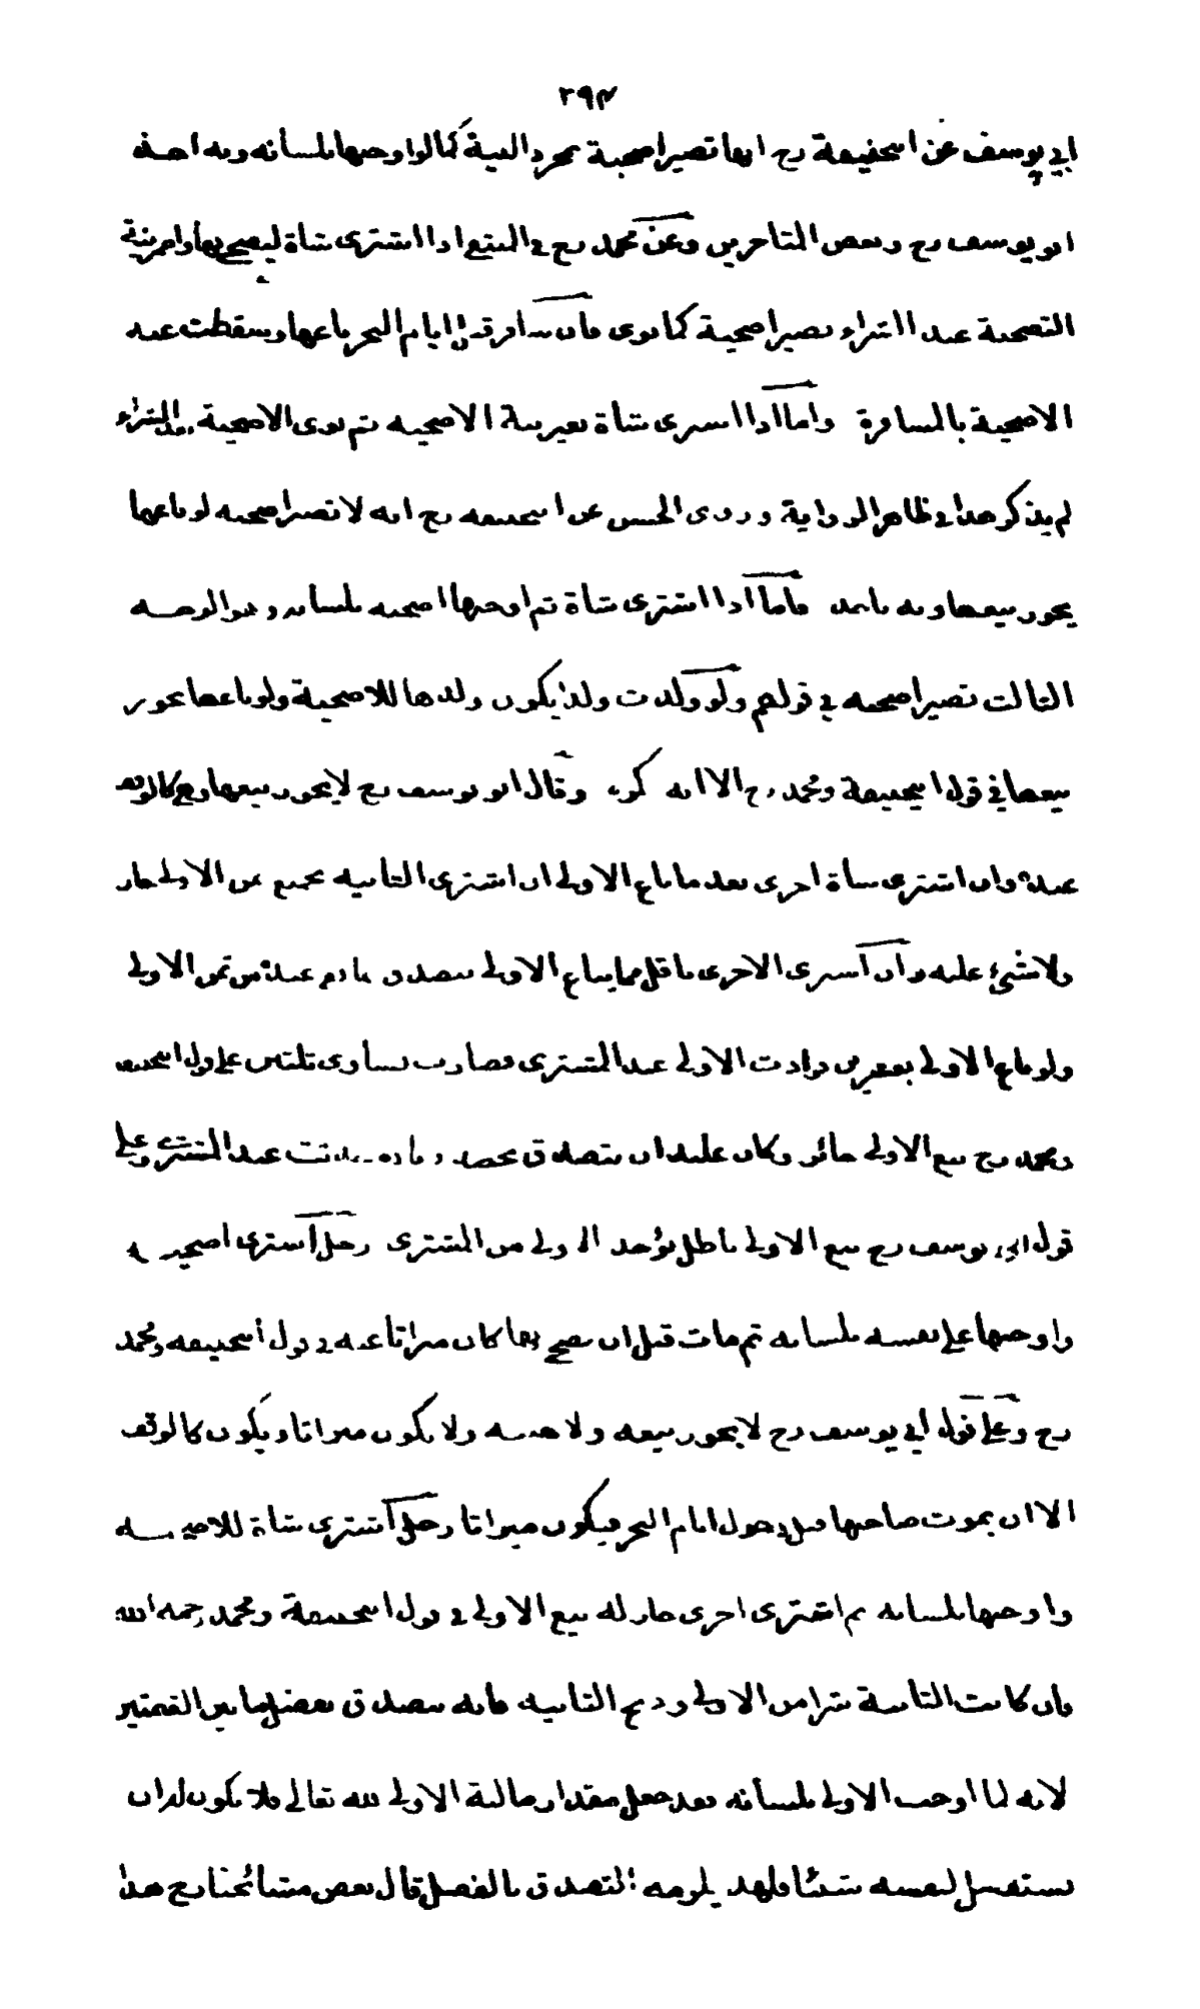 ٢٩٣
ابي يوسف عن ابيحنيفة رح انها تصير اضحية بمجرد النية كما لو اوجبها بلسانه وبه اخذ
ابو يوسف رح وبعض المتاخرين وعن محمد رح في المنتقى اذا اشترى شاة ليضحي بها واضمر نية
التضحية عند الشراء تصير اضحية كما نوى فان سافر قبل ايام النحر باعها وسقطت عنه
الاضحية بالمسافرة واما اذا اشترى شاة بغير نية الاضحية ثم نوى الاضحية بعد الشراء
لم يذكر هذا في ظاهر الرواية وروى الحسن عن ابيحنيفه رح انه لا تصير اضحيه لو باعها
يجوز بيعها وبه ناخذ فاما اذا اشترى شاة ثم اوجبها اضحيه بلسانه وهو الوجه
الثالث تصير اضحيه في قولهم ولو ولدت ولدا يكون ولدها للاضحية ولو باعها يجوز
بيعها في قول ابيحنيفة ومحمد رح الا انه يكره وقال ابو يوسف رح لا يجوز بيعها وهي كالوقف
عنده وان اشترى شاة اخرى بعد ما باع الاولى ان اشترى الثانيه بجميع ثمن الاولى جاز
ولا شيء عليه وان اشترى الاخرى باقل مما باع الاولى يتصدق بما بقي عنده من ثمن الاولى
ولو باع الاولى بعشرين فزادت الاولى عند المشترى فصارت تساوى ثلثين على قول ابيحنيفه
ومحمد رح بيع الاولى جائز وكان عليه ان يتصدق بحصة زيادة حدثت عند المشتري وعلى
قول ابي يوسف رح بيع الاولى باطل يؤخذ الاولى من المشترى رجل اشترى اضحية
واوجبها على نفسه بلسانه ثم مات قبل ان يضحي بها كان ميراثا عنه في قول ابيحنيفه ومحمد
رح وعلى قول ابي يوسف رح لا يجوز بيعه ولا هبته ولا يكون ميراثا ويكون كالوقف
الا ان يموت صاحبها قبل دخول ايام النحر فيكون ميراثا رجل اشترى شاة للاضحية
واوجبها بلسانه ثم اشترى اخرى جاز له بيع الاولى في قول ابيحنيفة ومحمد رحمه الله
فان كانت الثانية شرا من الاولى وذبح الثانيه فانه يتصدق بفضل ما بين القيمتين
لانه لما اوجب الاولى بلسانه فقد جعل مقدار مالية الاولى لله تعالى فلا يكون له ان
يستفضل لنفسه شيئا فلهذا يلزمه التصدق بالفضل قال بعض مشائخنا رح هذا